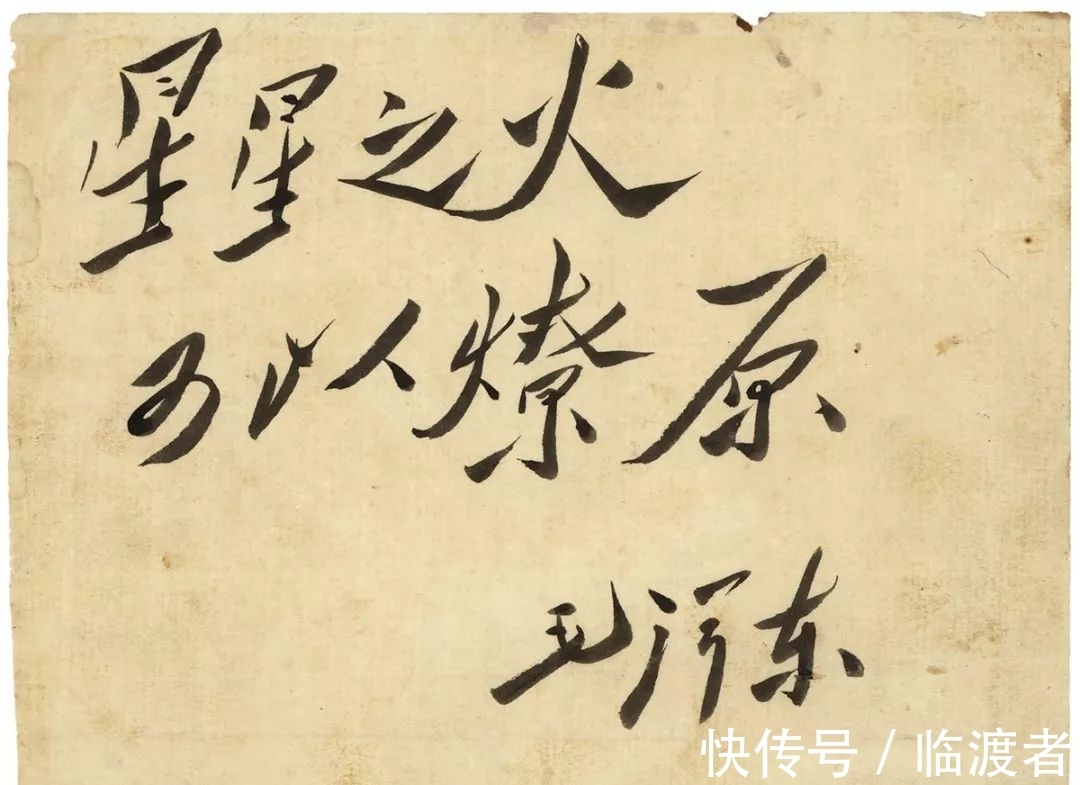 星星之火
可以燎原
毛泽东
快传号 / 临渡者